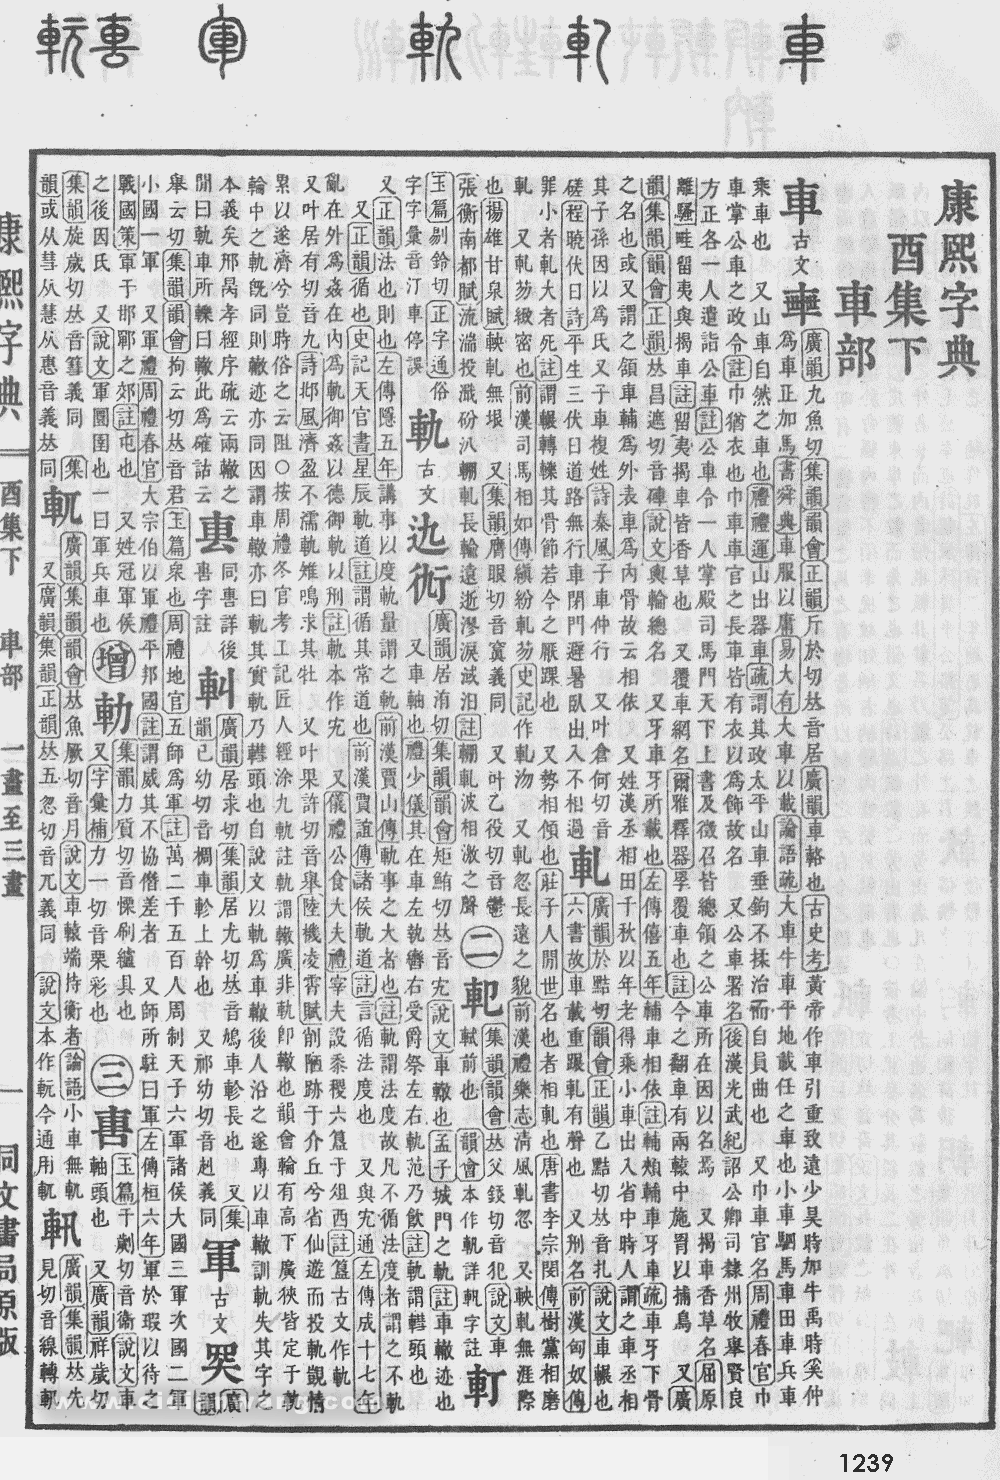 康熙字典
酉集下
車部
車古文
廣韻九魚切集韻韻會正韻斤於切𠀤音居廣韻車輅也古史考黃帝作車引重致遠少昊時加牛禹時奚仲
爲車正加馬書舜典車服以庸易大有大車以載論語疏大車牛車平地載任之車也小車駟馬車田車兵車
乘車也 又山車自然之車也禮禮運山出器車疏謂其政太平山車垂鉤不揉治而自員曲也 又巾車官名周禮春官巾
車掌公車之政令註巾猶衣也巾車車官之長車皆有衣以爲飾故名 又公車署名後漢光武紀詔公卿司隸州牧舉賢良
方正各一人遣詣公車註公車令一人掌殿司馬門天下上書及徵召皆總領之公車所在因以名焉 又揭車香草名屈原
離騷畦留夷與揭車註留夷揭車皆香草也 又覆車網名爾雅釋器罦覆車也註今之翻車有兩轅中施罥以捕鳥 又廣
韻集韻韻會正韻𠀤昌遮切音硨說文輿輪總名 又牙車牙所載也左傳僖五年輔車相依註輔頰輔車牙車疏車牙下骨
之名也或又謂之頷車輔爲外表車爲內骨故云相依 又姓漢丞相田千秋以年老得乘小車出入省中時人謂之車丞相
其子孫因以爲氏又子車複姓詩秦風子車仲行 又叶倉何切音
磋程曉伏日詩平生三伏日道路無行車閉門避暑臥出入不相過
軋
六書故車載重蹍軋有聲也 又刑名前漢匈奴傳有
罪小者軋大者死註謂輾轉轢其骨節若今之厭踝也 又勢相傾也莊子人閒世名也者相軋也唐書李宗閔傳樹黨相磨
軋 又軋芴緻密也前漢司馬相如傳縝紛軋芴史記作軋沕 又軋忽長遠之貌前漢禮樂志清風軋忽 又軮軋無涯際
也揚雄甘泉賦軮軋無垠 又集韻膺眼切音 義同 又叶乙役切音鬱
張衡南都賦流湍投濈砏汃輣軋長輸遠逝漻淚淢汩註輣軋波相激之聲
二
軓
集韻韻會𠀤父錽切音犯說文車
軾前也 韻會本作軌詳軓字註
軒
玉篇剔鈴切正字通俗
字字彙音汀車停誤
軌古文
廣韻居洧切集韻韻會矩鮪切𠀤音宄說文車轍也孟子城門之軌註車轍迹也
又車軸也禮少儀其在車左執轡右受爵祭左右軌范乃飮註軌謂轊頭也
又正韻法也則也左傳隱五年講事以度軌量謂之軌前漢賈山傳軌事之大者也註軌謂法度故凡不循法度者謂之不軌
又正韻循也史記天官書星辰軌道註謂循其常道也前漢賈誼傳諸侯軌道註言循法度也 又與宄通左傳成十七年
亂在外爲姦在內爲軌御姦以德御軌以刑註軌本作宄 又儀禮公食大夫禮宰夫設黍稷六簋于俎西註簋古文作軌
又叶居有切音九詩邶風濟盈不濡軌雉鳴求其牡 又叶果許切音舉陸機凌霄賦削陋跡于介丘兮省仙遊而投軌觀憍
累以遂濟兮豈時俗之云阻○按周禮冬官考工記匠人經涂九軌註軌謂轍廣非軌卽轍也韻會輪有高下廣狹皆定于軌
輪中之軌旣同則轍迹亦同因謂車轍亦曰軌其實軌乃轊頭也自說文以軌爲車轍後人沿之遂專以車轍訓軌失其字之
本義矣邢昺孝經序疏云兩轍之
閒曰軌車所轢曰轍此爲確詁云
同軎詳後
軎字註
廣韻居求切集韻居尤切𠀤音鳩車軫長也 又集
韻已幼切切音 車軫上幹也 又祁幼切音赳義同
軍古文
廣
韻
舉云切集韻韻會拘云切𠀤音君玉篇衆也周禮地官五師爲軍註萬二千五百人周制天子六軍諸侯大國三軍次國二軍
小國一軍 又軍禮周禮春官大宗伯以軍禮平邦國註謂威其不協僭差者 又師所駐曰軍左傳桓六年軍於瑕以待之
戰國策軍于邯鄲之郊註屯也 又姓冠軍侯
之後因氏 又說文軍圜圍也一曰軍兵車也
增
集韻力質切音慄刷繀具也
又字彙補力一切音栗彩也
三
軎
玉篇于劌切音衞說文車
軸頭也 又廣韻祥歲切
集韻旋歲切𠀤音篲義同 集
韻或从彗从慧从惠音義𠀤同
軏
廣韻集韻韻會𠀤魚厥切音月說文車轅端持衡者論語小車無軏 說文本作軏今通用軏
又廣韻集韻正韻𠀤五忽切音兀義同
軐
廣韻集韻𠀤先
見切音線轉軐
康熙字典
酉集下 車部 二畫至三畫
一
同文書局原版
1239